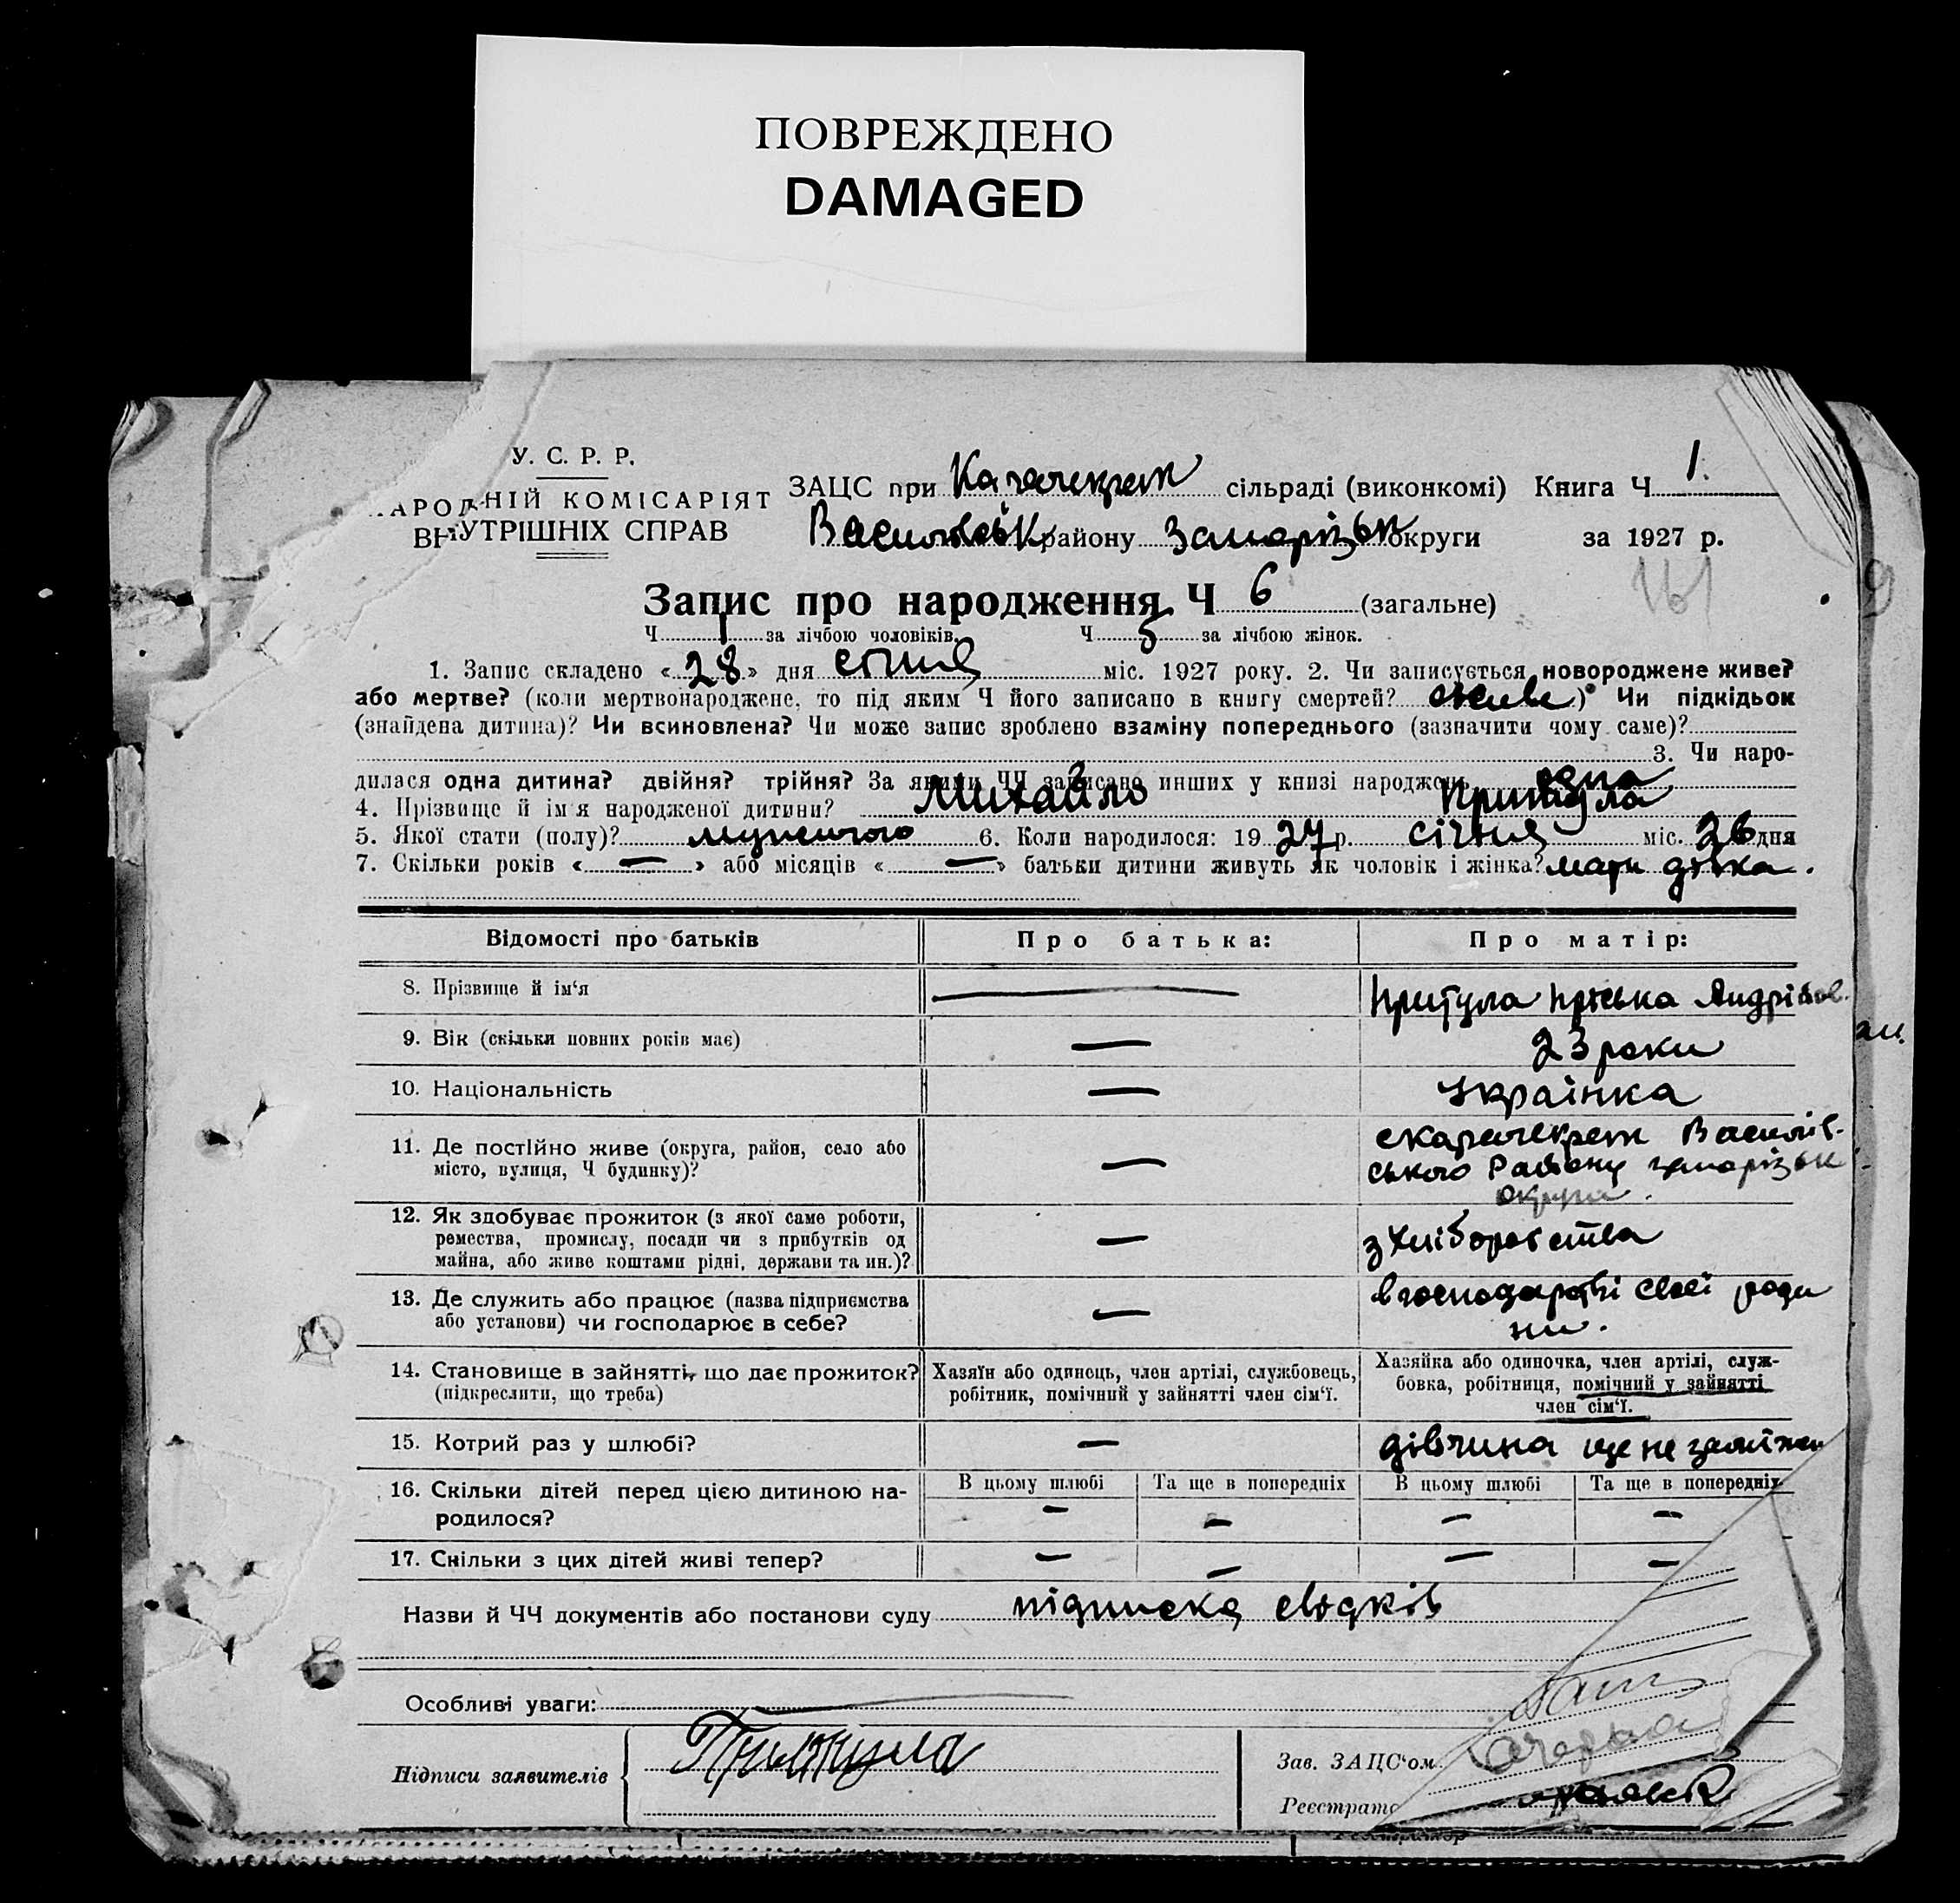 ПОВРЕЖДЕНО
DAMAGED
У. С. Р. Р.
НАРОДНІЙ КОМІСАРІЯТ
ВНУТРІШНІХ СПРАВ
ЗАЦС при Карачекрак сільраді (виконкомі) Книга Ч 1.
Василівськ району Запорізьк округи за 1927 р.
Запис про народження Ч 6 (загальне)
Ч 1 за лічбою чоловіків. Ч 5 за лічбою жінок.
1. Запис складено «28» дня січня міс. 1927 року. 2. Чи записується новороджене живе?
або мертве? (коли мертвонароджене, то під яким Ч його записано в книгу смертей? живе) Чи підкідьок
(знайдена дитина)? Чи всиновлена? Чи може запис зроблено взаміну попереднього (зазначити чому саме)?
3. Чи наро-
дилася одна дитина? двійня? трійня? За якими ЧЧ записано инших у книзі народжень одна
4. Прізвище й ім'я народженої дитини? Михайло Притула
5. Якої стати (полу)? мужичого 6. Коли народилося: 1927 р. січня міс. 26 дня
7. Скільки років «—» або місяців «—» батьки дитини живуть як чоловік і жінка? мати дівка.
Відомості про батьків Про батька: Про матір:
8. Прізвище й ім'я — Притула Пріська Андрі
9. Вік (скільки повних років має) — 23 роки
10. Національність — Українка
11. Де постійно живе (округа, район, село або
місто, вулиця, Ч будинку)? — с Карачекрак Василів-
ського Району Запорізьк
округи.
12. Як здобуває прожиток (з якої саме роботи,
ремества, промислу, посади чи з прибутків од
майна, або живе коштами рідні, держави та ин.)? — з Хліборобства
13. Де служить або працює (назва підприємства
або установи) чи господарює в себе? — в господарстві своєї роди
ни.
14. Становище в зайнятті, що дає прожиток?
(підкреслити, що треба)
Хазяїн або одинець, член артілі, службовець,
робітник, помічний у зайнятті член сім'ї.
Хазяйка або одиночка, член артілі, служ-
бовка, робітниця, помічний у зайнятті
член сім'ї.
15. Котрий раз у шлюбі? — дівчина ще не заміжем
16. Скільки дітей перед цією дитиною на-
родилося?
В цьому шлюбі Та ще в попередніх В цьому шлюбі Та ще в попередніх
— — — —
17. Скільки з цих дітей живі тепер? — — — —
Назви й ЧЧ документів або постанови суду підписка свідків
Особливі уваги:
Підписи заявителів Притула
Зав. ЗАЦС'ом
Реєстрато